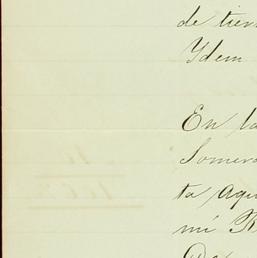 de tier
Ydem
En la
Somer
ta Aqu
mi R